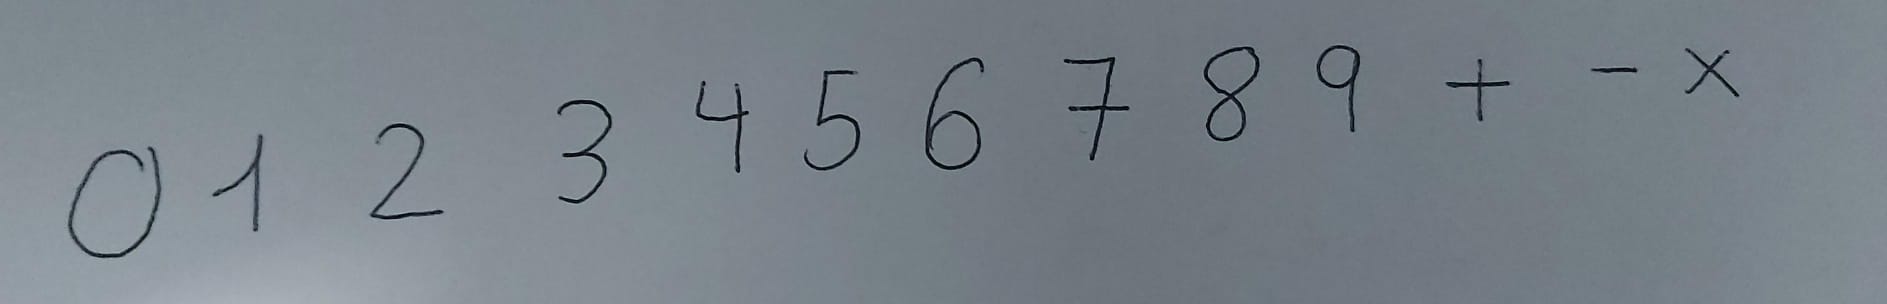 0 1 2 3 4 5 6 7 8 9 + - x